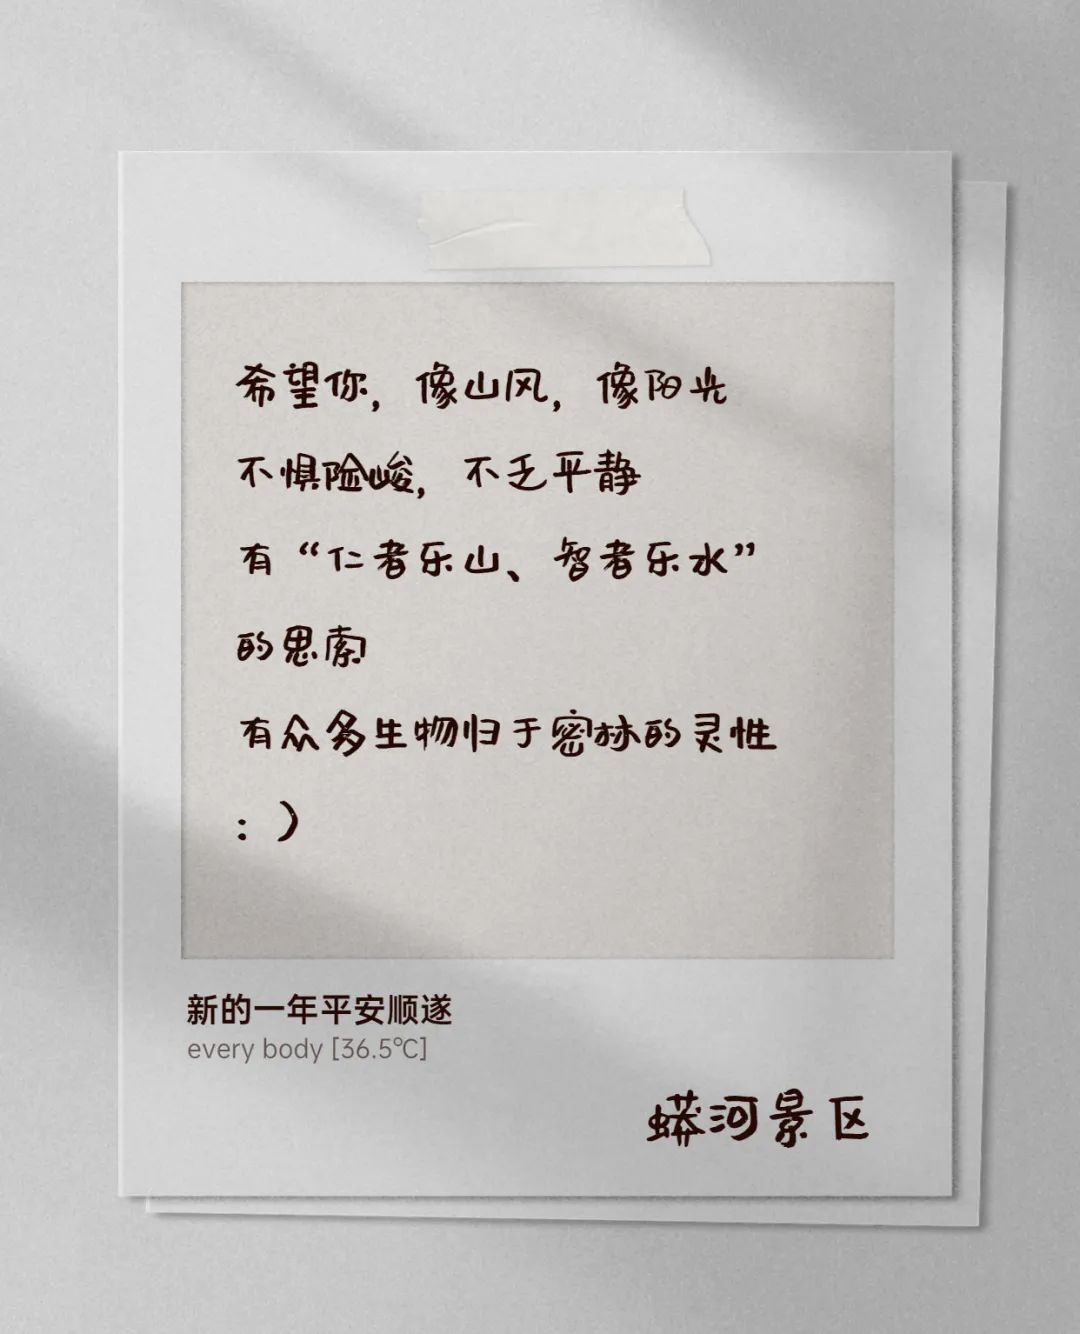 希望你，像山风，像阳光
不惧险峻，不乏平静
有“仁者乐山、智者乐水”
的思索
有众多生物归于密林的灵性
：）
新的一年平安顺遂
every body [36.5℃]
蟒河景区